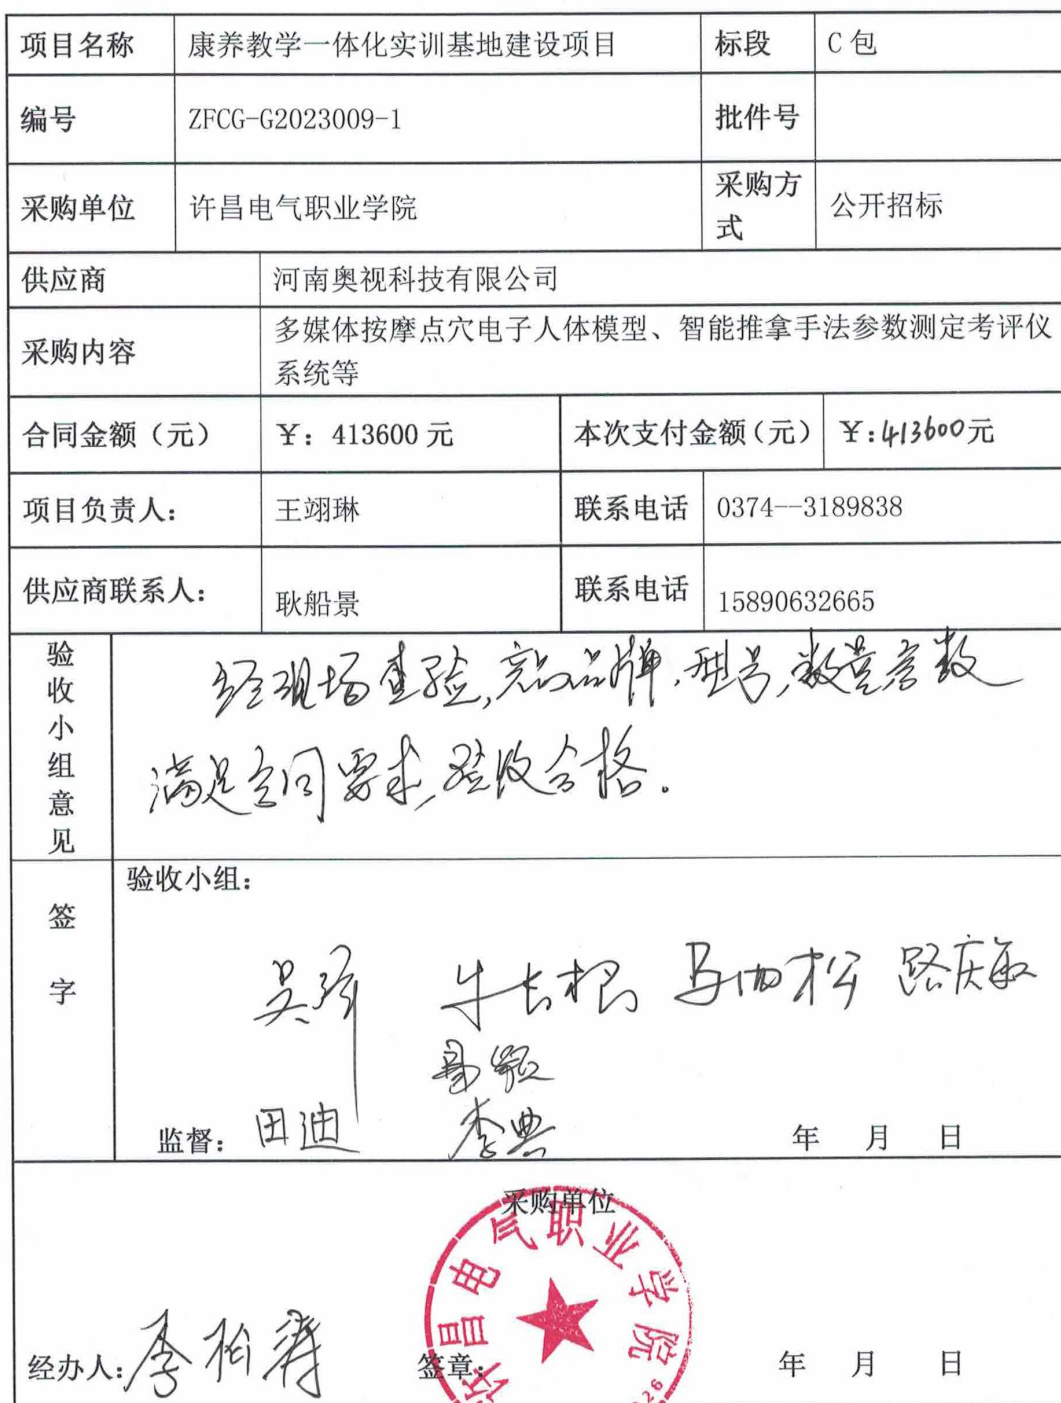 项目名称 康养教学一体化实训基地建设项目 标段 C包
编号 ZFCG-G2023009-1 批件号
采购单位 许昌电气职业学院 采购方式 公开招标
供应商 河南奥视科技有限公司
采购内容 多媒体按摩点穴电子人体模型、智能推拿手法参数测定考评仪
系统等
合同金额（元） ￥：413600元 本次支付金额（元） ￥:413600元
项目负责人： 王翊琳 联系电话 0374--3189838
供应商联系人： 耿船景 联系电话 15890632665
验收小组意见
经现场查验,产品品牌,型号,数量参数
满足合同要求,验收合格。
签字
验收小组：
牛长根 路庆敏
监督：田迪 李典 年 月 日
采购单位
许昌电气职业学院
经办人: 签章: 年 月 日